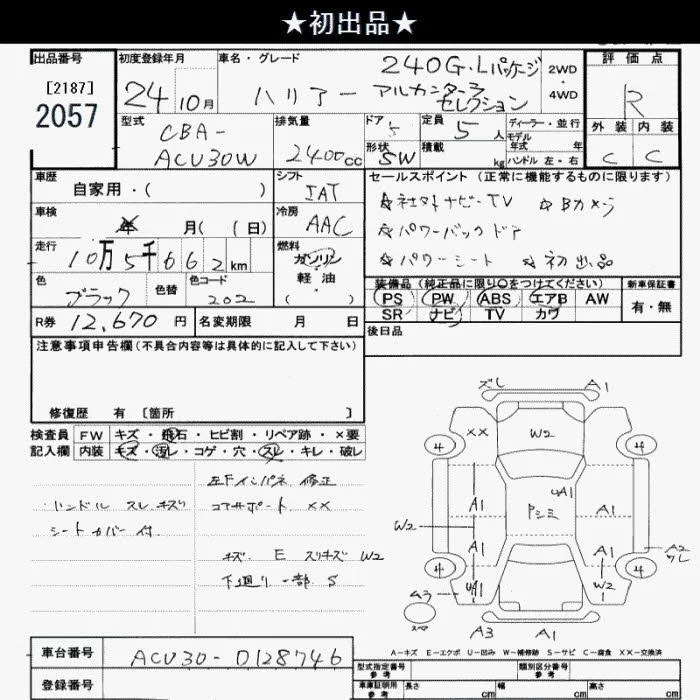 ★初出品★
出品番号
[2187]
2057
初度登録年月
24 10月
車名・グレード
ハリアー 240G・Lパッケージ
アルカンターラ
セレクション
2WD
・
4WD
評価点
R
外装 内装
C C
型式
CBA-
ACU30W
排気量
2400cc
ドア 5
形状 SW
定員 5人
積載 kg
ディーラー・並行
モデル
年式 年
ハンドル 左・右
車歴
自家用・( )
シフト
IAT
セールスポイント (正常に機能するものに限ります)
☆社外ナビ・TV ☆Bカメラ
☆パワーバックドア
☆パワーシート ☆初出品
車検
年 月( ( 日)
冷房
AAC
走行
10万5千662km
燃料
ガソリン
軽・油
( )
色
ブラック
色替
色コード
202
装備品 (純正品に限り○をつけてください)
PS PW ABS エアB AW
SR ナビ TV カワ
新車保証書
有・無
R券 12,670円
名変期限 月 日
後日品
注意事項申告欄 (不具合内容等は具体的に記入して下さい)
修復歴 有 [箇所 ]
検査員 FW キズ・飛石・ヒビ割・リペア跡・×要
記入欄 内装 キズ・汚レ・コゲ・穴・スレ・キレ・破レ
左Fインパネ 修正
ハンドル スレ キズ
コアサポート ××
シートカバー付
キズ E スリキズ W2
下廻り一部 S
ズレ A1
×× W2
4 4
A1 Pシミ A1
W2
A1 A1
A2
4 4
W2
A3
スペア
A3 A1
A-キズ E-エクボ U-凹み W-補修跡 S-サビ C-腐食 ××-交換済
車台番号
ACU30-0128746
登録番号
型式指定番号
参考
類別区分番号
参考
車庫証明用
参考
長さ cm
幅 cm
高さ cm